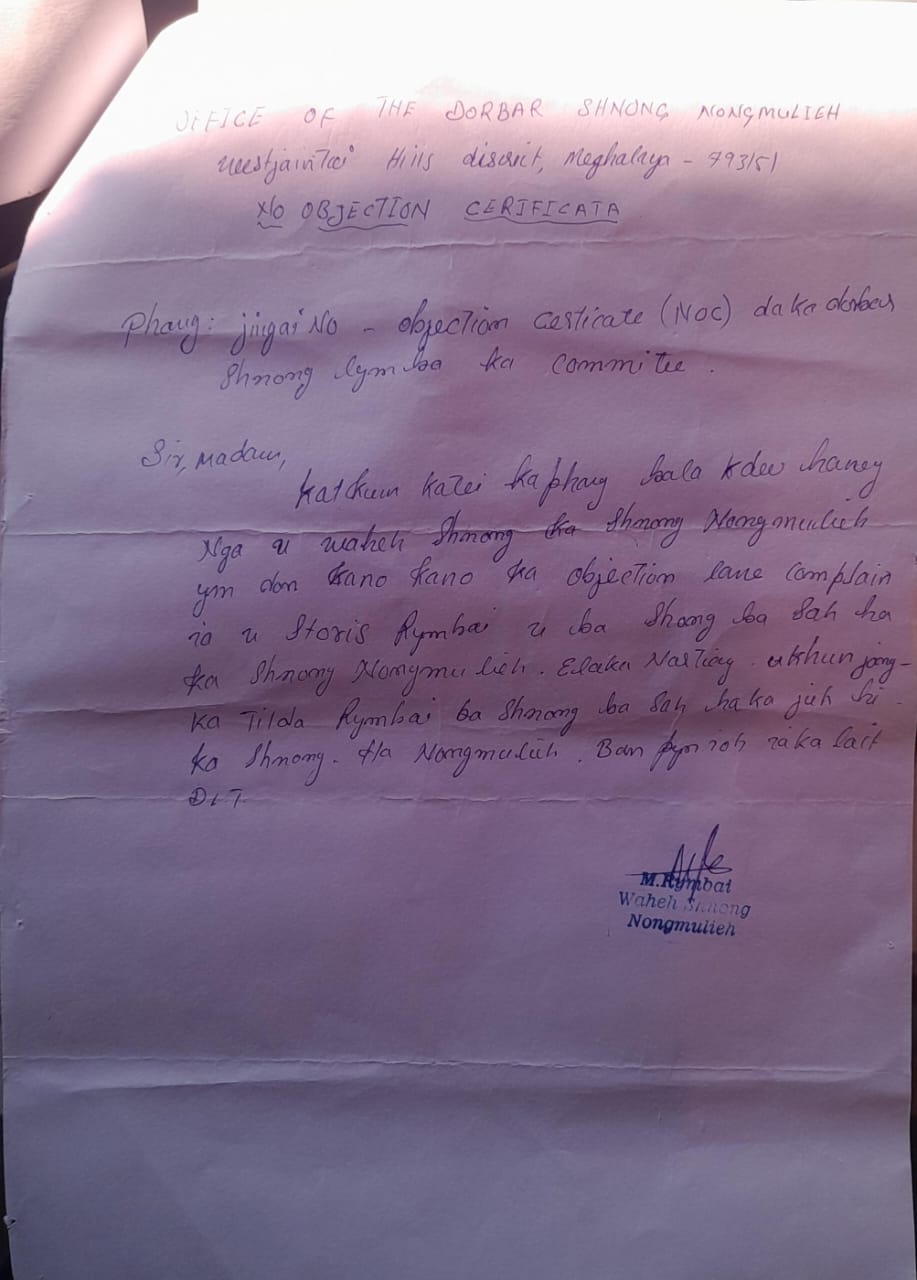 OFFICE OF THE DORBAR SHNONG NONGMULIEH
Hills discrict, Meghalaya - 793151
NO OBJECTION CERIFICATA
Phang: jingai No - objection certicate (NOC) da ka dorbar
Shnong lymba ka committee.
Sir, madam,
Katkum katei ka phang bala kdew haney
Nga u waheh Shnong ka Shnong Nongmulieh
ym don kano kano ka objection lane complain
ia u Storis Rymbai u ba Shong ba Sah ha
ka Shnong Nongmulieh. Elaka Nartiang. u khun jong-
ka Tilda Rymbai ba Shnong ba Sah ha ka juh hi.
ka Shnong. Ha Nongmulieh. Ban pynioh ia ka lait
M.Rymbai
Waheh Shnong
Nongmulieh